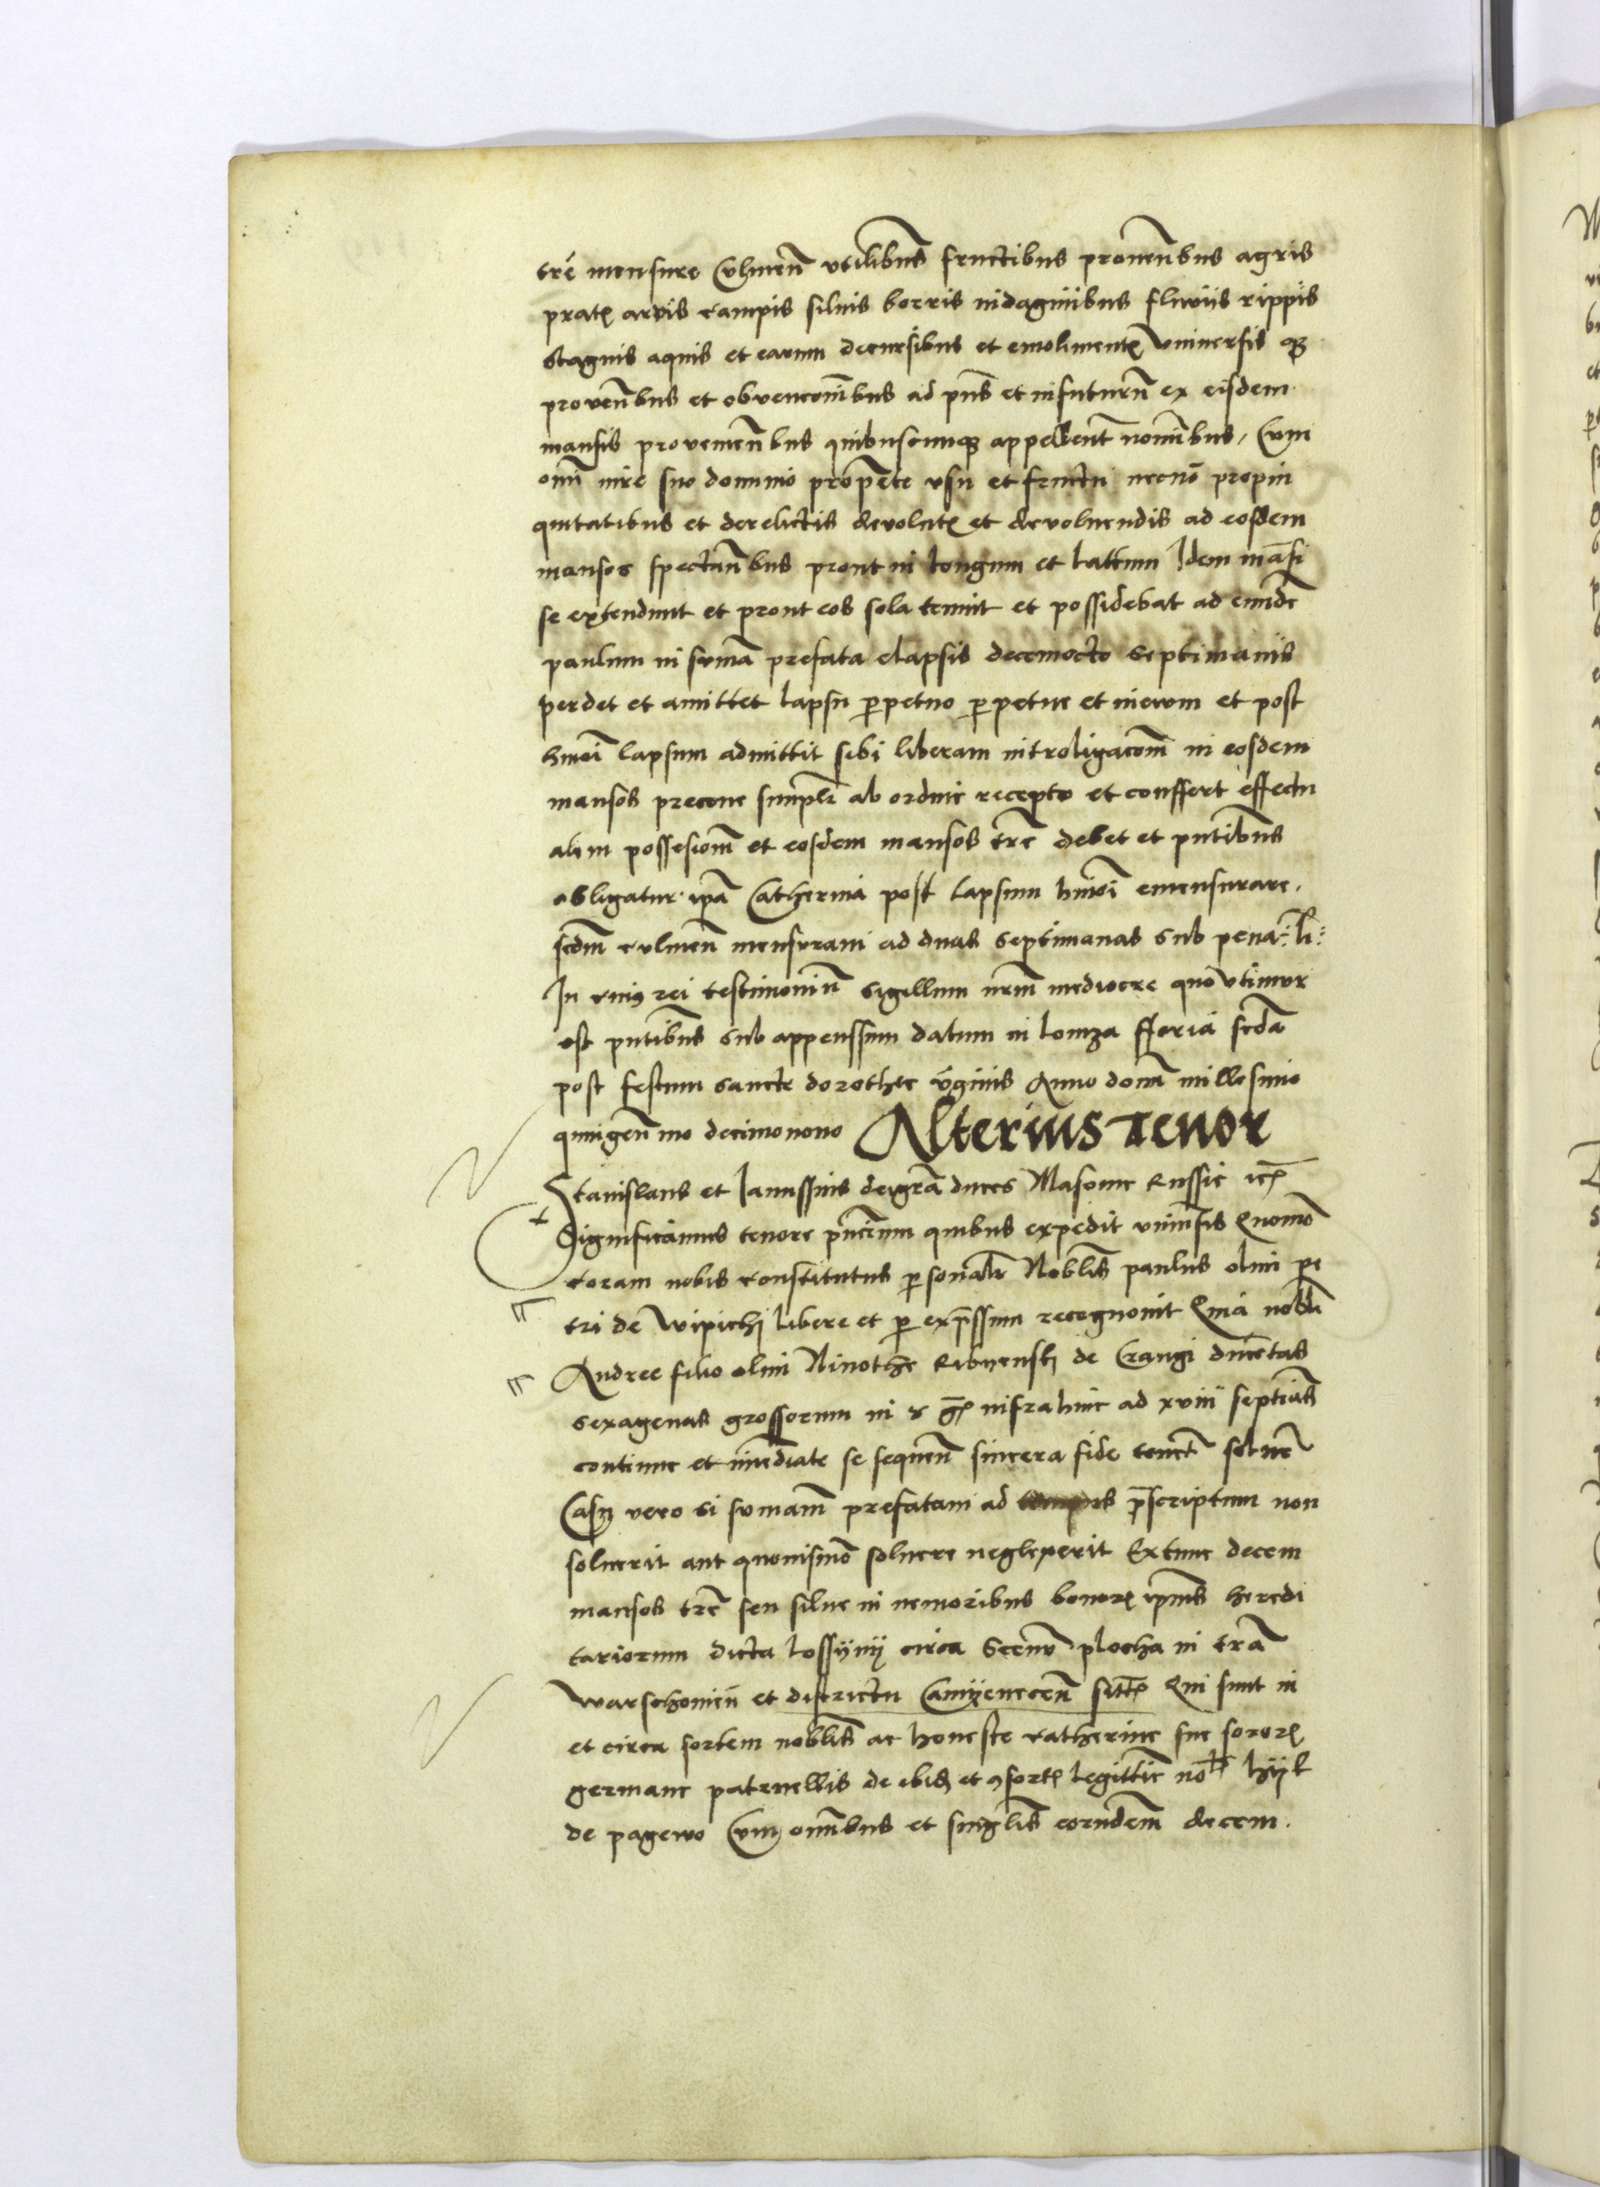 tre mensure Culmen utilibus fructibus provenbus agris
prat arvis campis silvis borris indaginibus fluviis rippis
stagnis aquis et earum decursibus et emoliment Universis
provenbus et obvenconibus ad pns et infuturu ex eisdem
mansis provenienbus quibuscumque appellent nominibus, Cum
omni iure suo dominio propete usu et fructu necno propin
quitatibus et derelictis devolut et devolvendis ad eosdem
mansos spectanbus prout in longum et lattum Idem mansi
se extendunt et prout eos sola tenuit et possidebat ad eunde
paulum in summa prefata elapsis decemocto septimanis
perdet et amittet lapsu perpetuo perpetue et inevom et post
hmoi lapsum admittit sibi liberam introligacom in eosdem
mansos precone simpli ab ordine recepto et conffert effectu
alem possesiom et eosdem mansos tre debet et pntibus
obligatur ipa Catherina post lapsum hmoi emensurare.
scdm culmen mensurani ad duas septimanas sub pena
In cuius rei testimoniu sigillum nrm mediocre quo utimur
est pntibus sub appenssum datum in lomza fferia scda
post festum sancte dorothee virginis Anno domi millesimo
quingenmo decimonono Alterius Tenor
Stanislaus et Ianussius deigra duces Masovie Russie
Significamus tenore pncium quibus expedit univsis Quomo
coram nobis constitutus personalr Noblis paulus olim pe
tri de Wipichi libere et per expressum recognovit Quia nobli
Andree filio olim de Crangi ducentas
sexagenas grossorum in infrahinc ad xviii septias
continue et immediate se sequen sincera fide tenet solvere
Casu vero si summam prefatam ad tempus prescriptum non
solverit aut quovismo solvere neglexerit Extunc decem
mansos tre seu silve in nemoribus bonor ipius heredi
tariorum dicta lossyny circa plocha in tra
Warschovien et districtu Camyenecen Qui sunt in
et circa sortem noblis ac honeste catherine sue soror
germane patruellis de ibid et csort legittie
de pagewo Cum omnibus et singlis eorundem decem.